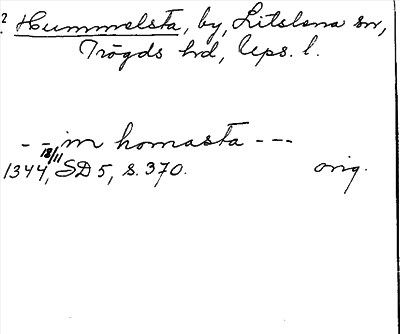 2. Hummelsta, by, Litslena sn,
Trögds hd, Ups. l.
- - in homasta - - -
18/11
1344, SD 5, s. 370. orig.